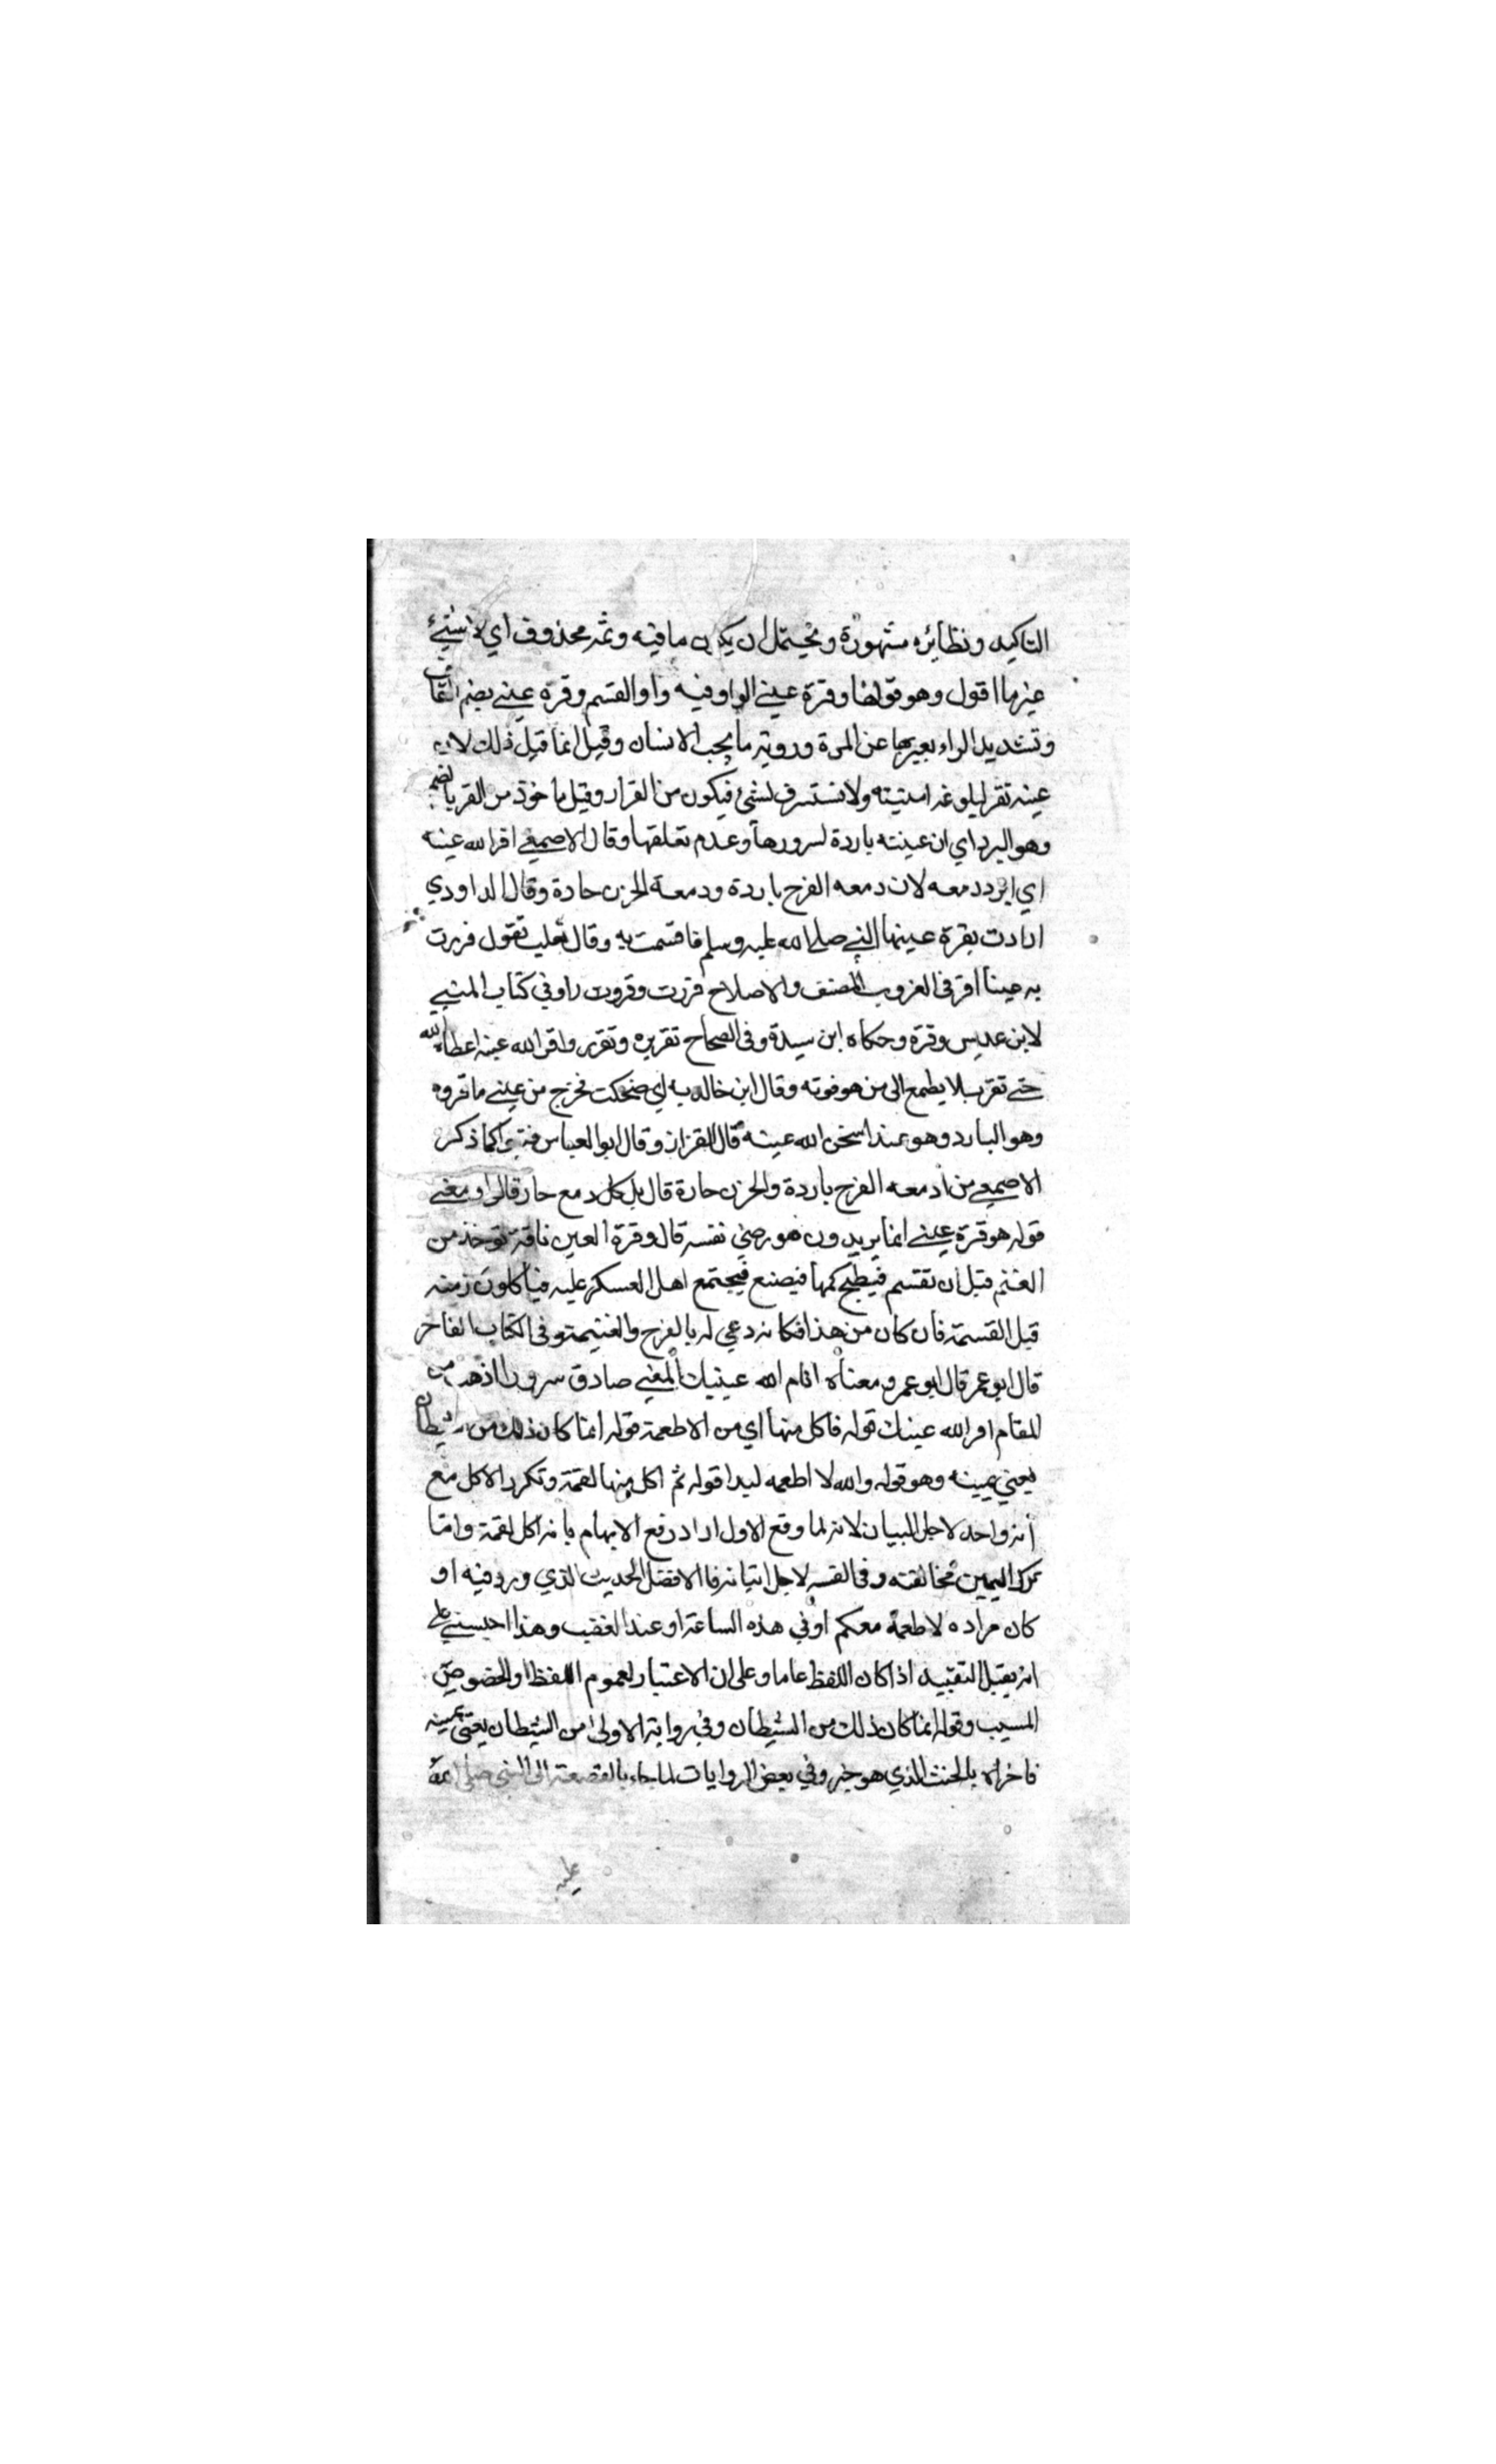 التاكيد ونظايره مشهورة ويحتمل ان يكون ما فيه وثمه محذوف اي لا شيء
غير ما اقول وهو قولها وقرة عيني الواو فيه واو القسم وقرة عيني بضم القاف
وتشديد الراء بعبر بها عن المسرة وروية ما يحب الانسان وقيل انما قيل ذلك لان
عينه تقر لبلوغه امنيته ولا تستشرف لشئ فيكون من القرار وقيل ماخوذ من القر بالضم
وهو البرد اي ان عينه باردة لسرورها وعدم تعلقها وقال الاصمعي اقر الله عينه
اي ابرد دمعه لان دمعه الفرح باردة ودمعة الحزن حادة وقال الداودي
ارادت بقرة عينها النبي صلى الله عليه وسلم فاقسمت به وقال ثعلب تقول قررت
به عينا اقر في الغروب المصنف والاصلاح قررت وقررت راو في كتاب المثني
لابن عديس وقرة وحكاه ابن سيدة وفي الصحاح تقريره وتقرر واقر الله عينه اعطاه الله
حتي تقر فلا يطمح الى من هو فوته وقال ابن خالويه اي ضحكت فخرج من عيني ماقروه
وهو البارد وهو عند اسخن الله عينه قال القزاز وقال ابو العباس كما ذكر
الاصمعي من ان دمعه الفرح باردة والحزن حارة قال بل كل دمع حار قالوا ومعني
قوله هو قرة عيني انما يريدون هو رضي نفسه قال وقرة العين ناقة توخذ من
الغنم قبل ان تقسم فيطبخ لحمها فيصنع فيجتمع اهل العسكر عليه فياكلون منه
قبل القسمة فان كان من هذا فكانه دعي له بالفرح والغنيمة وفي الكتاب الفاخر
قال ابو عمر قال ابو عمرو معناه انام الله عينيك المعني صادق سرورا اذهب
المقام اقر الله عينك قوله فاكل منها اي من الاطعمة قوله انما كان ذلك من الشيطان
يعني يمينه وهو قوله والله لا اطعمه ليدا قوله ثم اكل منها لقمة وتكرر الاكل مع
انه واحد لاجل البيان لانه لما وقع الاول اراد رفع الابهام بانه اكل لقمة واما
ترك اليمين مخالفته وفي القسم لاجل اتيانه فاالافضل الحديث الذي ورد فيه او
كان مراده لا طعمه معكم او في هذه الساعة او عند الغضب وهذا احبسني علي
انه يقبل التقييد اذا كان اللفظ عاما وعلى ان الاعتبار لعموم اللفظ او لخصوص
المسبب وقوله انما كان ذلك من الشيطان وفي رواية الاولى من الشيطان يعني يمينه
فاخزاه بالحنث الذي هو خير وفي بعض الروايات لما جاء بالقصعة الى النبي صلى الله
عليه